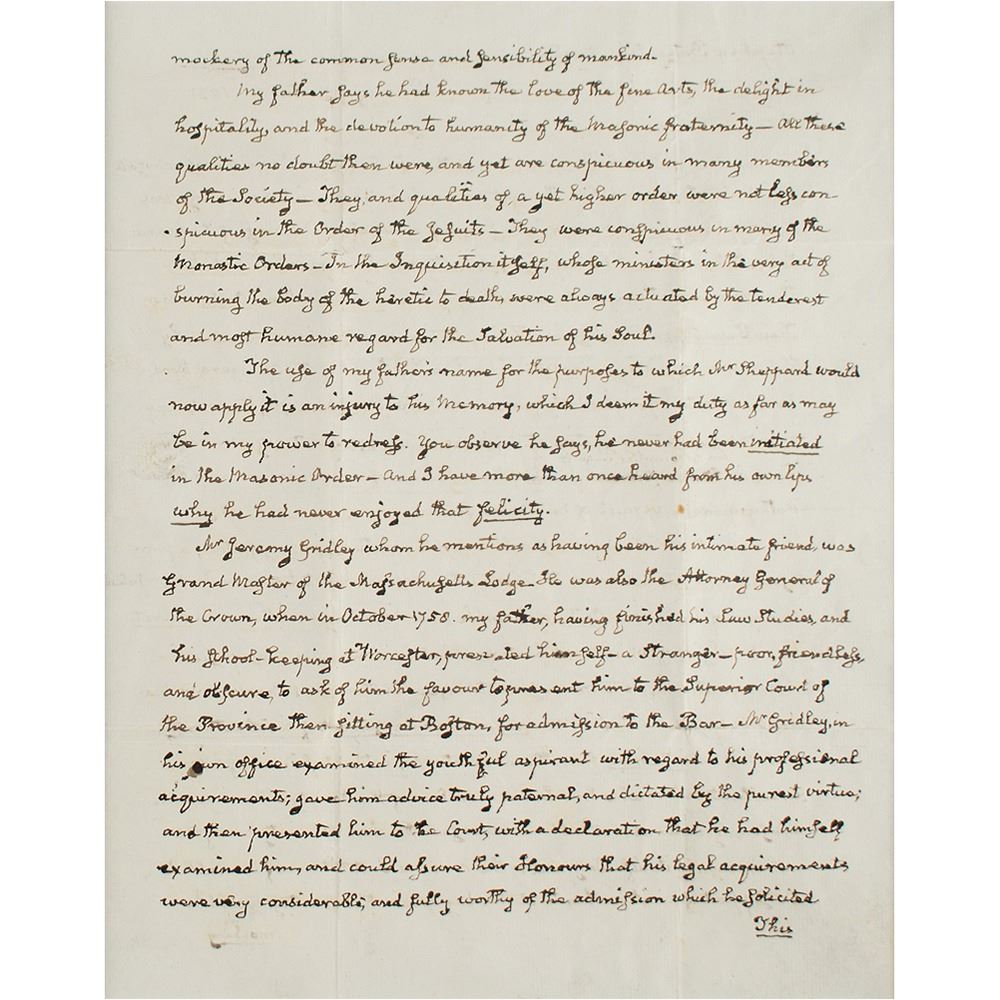 mockery of the common sense and sensibility of mankind.
My father says he had known the love of the fine Arts, the delight in
hospitality, and the devotion to humanity of the Masonic fraternity — All these
qualities no doubt then were, and yet are conspicuous in many members
of the Society — They, and qualities of, a yet higher order were not less con
spicuous in the Order of the Jesuits — They were conspicuous in many of the
Monastic Orders — In the Inquisition itself, whose ministers in the very act of
burning the body of the heretic to death, were always actuated by the tenderest
and most humane regard for the Salvation of his Soul.
The use of my father's name for the purposes to which Mr Sheppard would
now apply it is an injury to his Memory, which I deem it my duty as far as may
be in my power to redress. You observe he says, he never had been initiated
in the Masonic Order — And I have more than once heard from his own lips
why he had never enjoyed that felicity.
Mr Jeremy Gridley whom he mentions as having been his intimate friend, was
Grand Master of the Massachusetts Lodge. He was also the Attorney General of
the Crown, when in October 1758. my father, having finished his Law Studies, and
his school-keeping at Worcester, presented himself — a Stranger — poor, friendless,
and obscure, to ask of him the favour to present him to the Superior Court of
the Province then sitting at Boston, for admission to the Bar — Mr Gridley, in
his own office examined the youthful aspirant with regard to his professional
acquirements; gave him advice truly paternal, and dictated by the purest virtue;
and then presented him to the Court, with a declaration that he had himself
examined him, and could assure their Honours that his legal acquirements
were very considerable, and fully worthy of the admission which he solicited
This